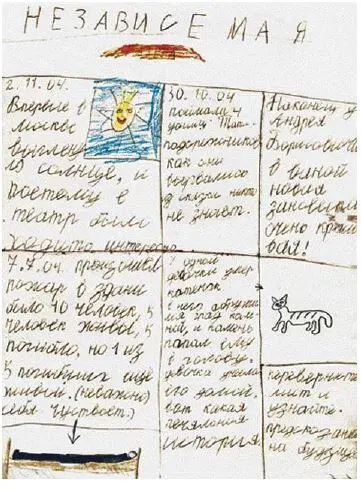 НЕЗАВИСЕМАЯ
2.11.04.
Впервые в
москве
выгленуло
солнце, и
поетому в
театр было
ходить интересно
30.10.04
поймали 4
узниц.
подснежников
как они
из сказки никто
не знает.
Наконец у
Андрея
Борисовича
в ванной
новая
занавеска
очено краси
вая!
7.7.04. произошёл
пожар в здани
было 10 человек, 5
человек живы, 5
погибло, но 1 из
5 погибших ещё
живой. (неважно
себя чуствоет.)
У одной
девочки умер
котёнок
на него обрушил
ся град кам
ней, и камень
попал ему
в голову.
девочка
его домой,
вот какая
печяльная
история
переверните
лист и
узнайте
предсказания
на будущее